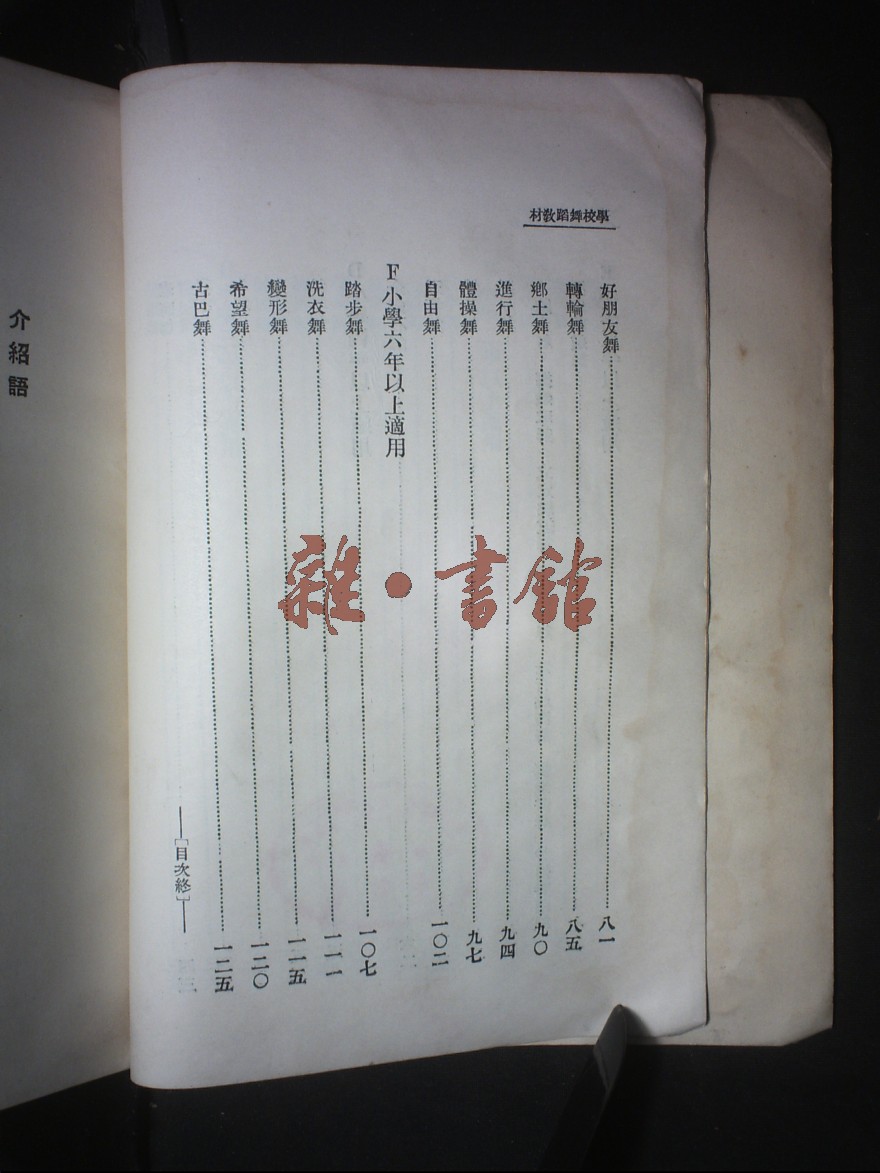 學校舞蹈教材
好朋友舞……八一
轉輪舞……八五
鄉土舞……九〇
進行舞……九四
體操舞……九七
自由舞……一〇二
F 小學六年以上適用
踏步舞……一〇七
洗衣舞……一一一
變形舞……一一五
希望舞……一二〇
古巴舞……一二五
——[目次終]——
介紹語
雜·書館